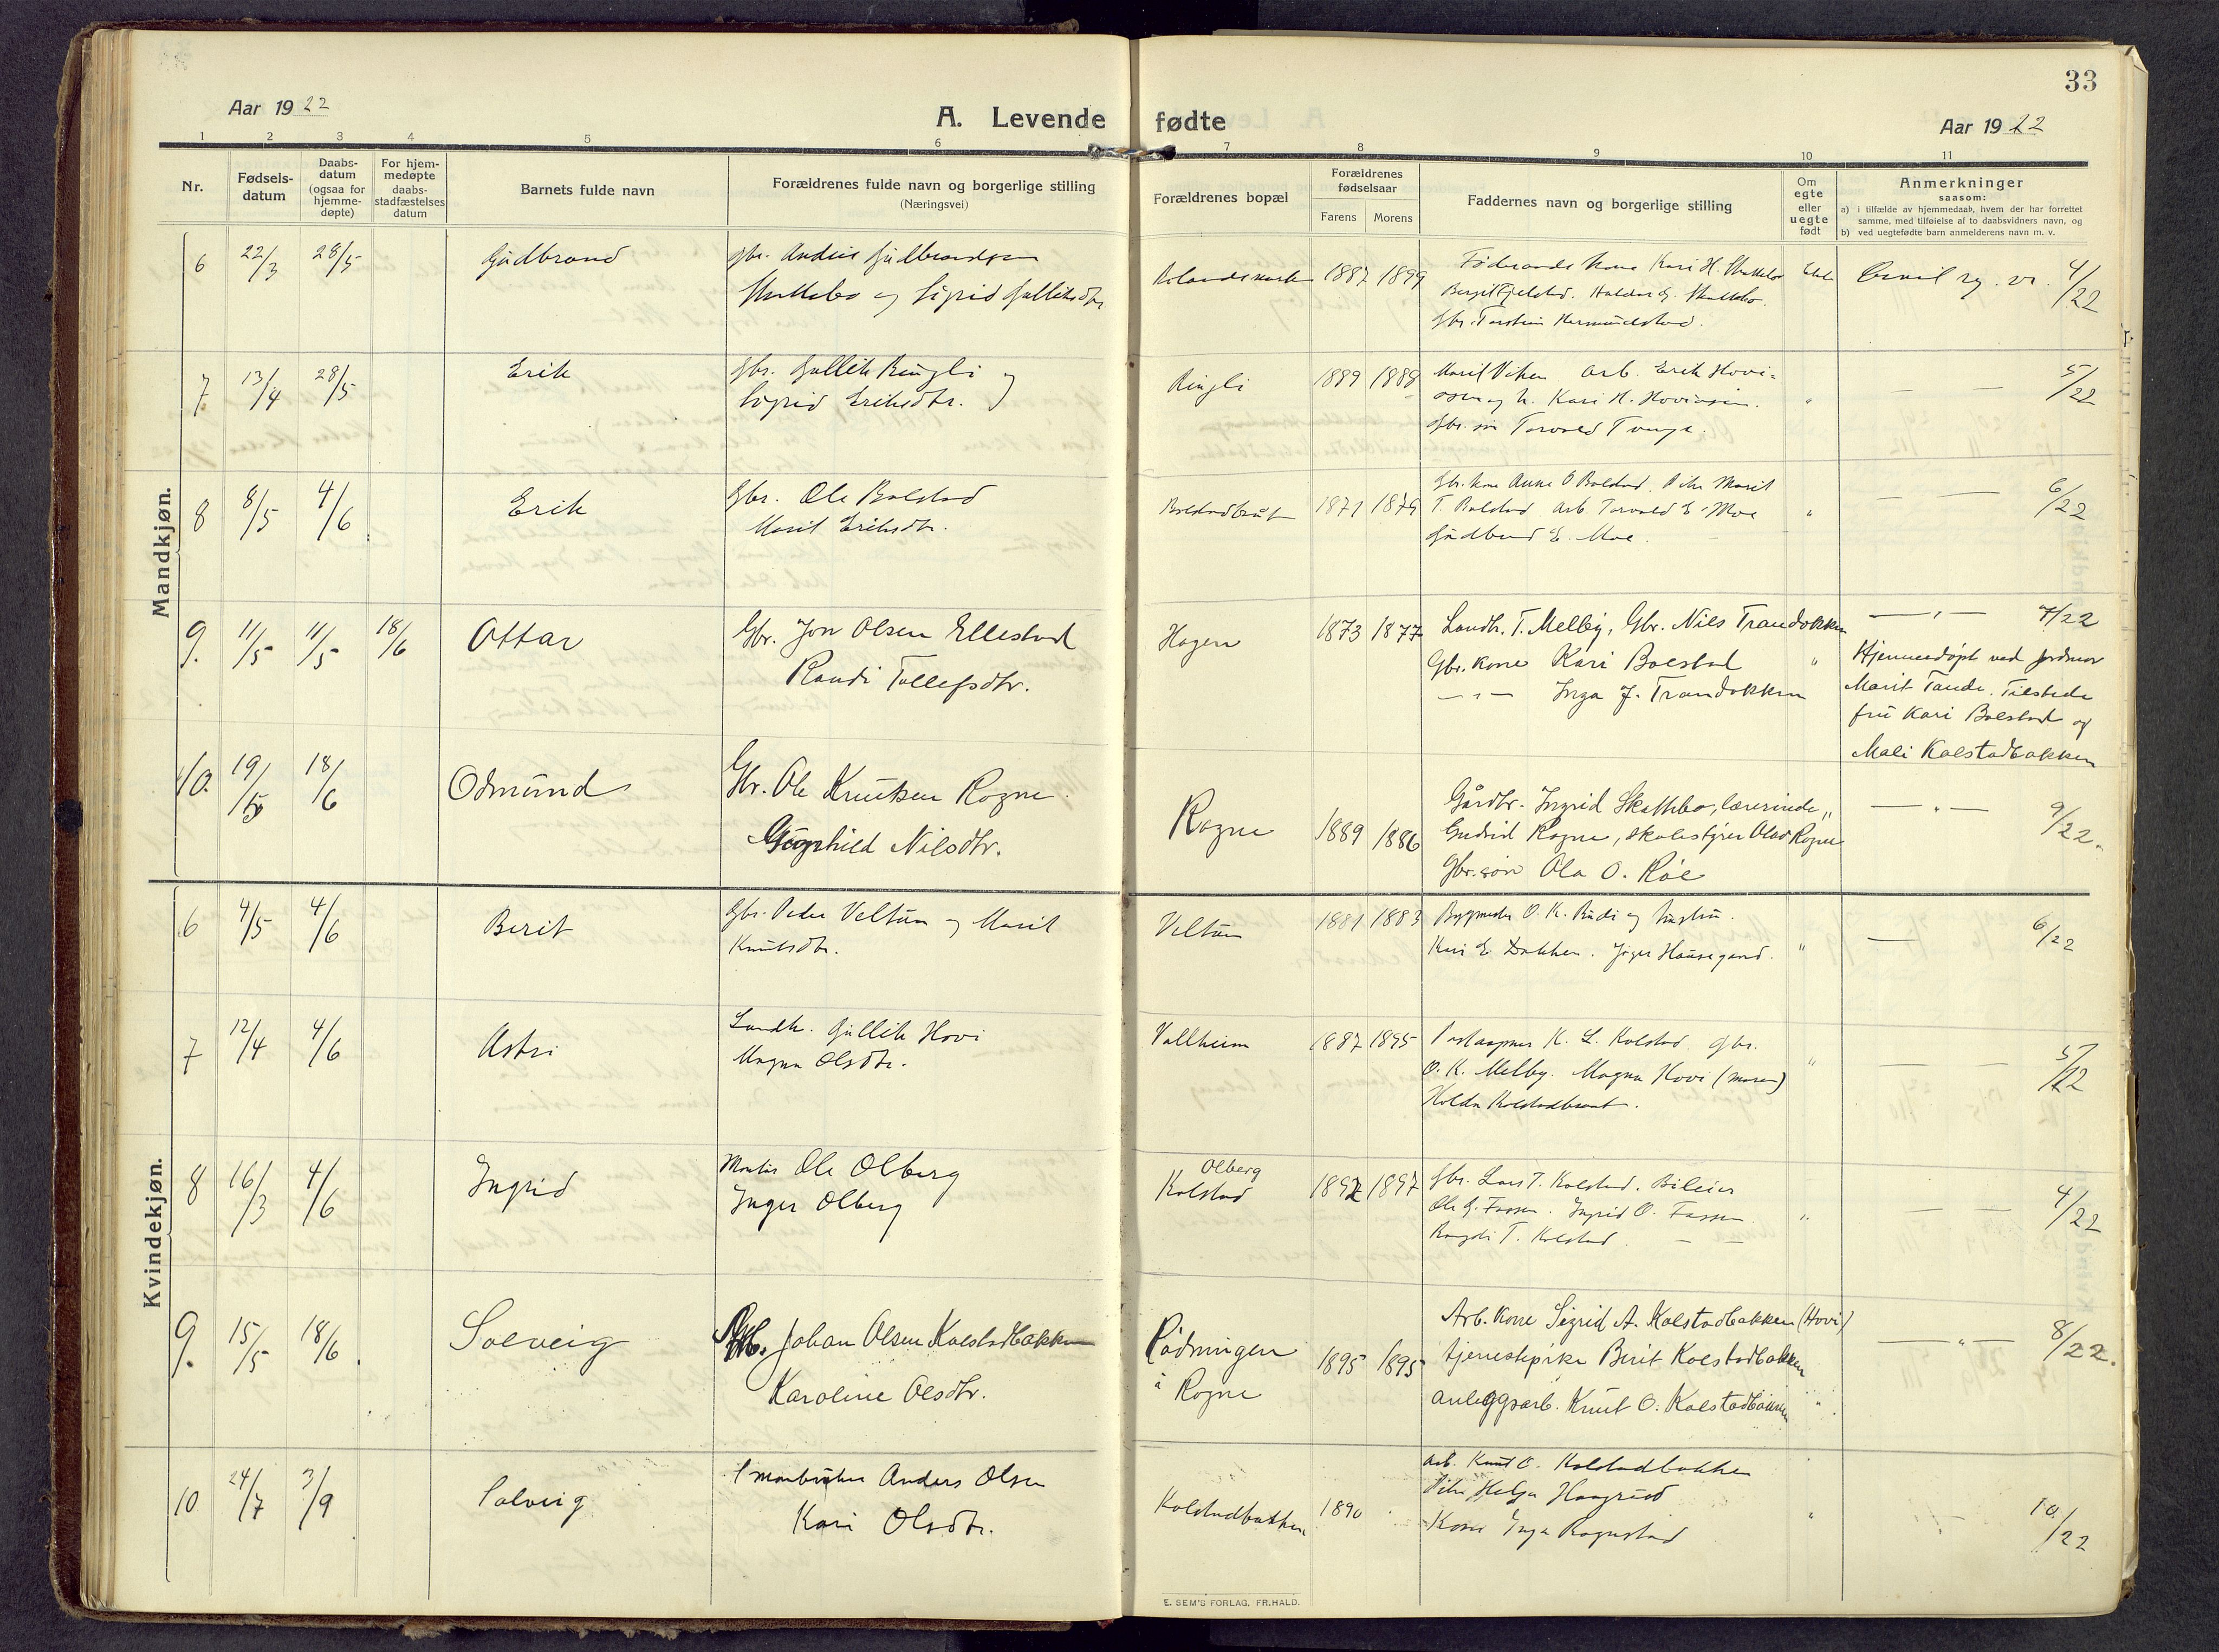 33
Aar 1922
A. Levende fødte
Aar 1922
1 2 3 4 5 6 7 8 9 10 11
Nr.
Fødsels-
datum
Daabs-
datum
(ogsaa for
hjemme-
døpte)
For hjem-
medøpte
daabs-
stadfæstelses
datum
Barnets fulde navn
Forældrenes fulde navn og borgerlige stilling
(Næringsvei)
Forældrenes bopæl
Forældrenes
fødselsaar
Farens Morens
Faddernes navn og borgerlige stilling
Om
egte
eller
uegte
født
Anmerkninger
saasom:
a) i tilfælde av hjemmedaab, hvem der har forrettet
samme, med tilføielse af to daabsvidners navn, og
b) ved uegtefødte barn anmelderens navn m. v.
Mandkjøn.
6 22/3 28/5 Gudbrand
Gbr. Gudbrandsen
og Sigrid Gulliksdtr
1887 1899
Kari H.
Gbr. Torstein Hermundstad.
4/22
7 13/4 28/5 Erik
Gbr. Gullik Ringli og
Sigrid Eriksdtr.
Ringli 1889 1888
Marit Viken Arb. Erik Hovi-
og k. Kari H.
Gbr. søn Torvald
— — 5/22
8 8/5 4/6 Erik
Gbr. Ole Bolstad
Marit Eriksdtr.
Bolstadbråt 1871 1879
Gbr. kone Anne O Bolstad. Pike Marit
T. Bolstad Arb Torvald E. Moe
Gudbrand E. Moe.
" — — 6/22
9. 11/5 11/5 18/6 Ottar
Gbr. Jon Olsen Ellestad
Randi Tollefsdtr.
Hagen 1873 1877
Landh. T. Melby, Gbr. Nils Trandokken
Gbr. kone Kari Bolstad "
— " — Inga J. Trandokken
— " — 7/22
Hjemmedøpt ved jordmor
Marit Tande. Tilstede
fru Kari Bolstad og
Mali Kolstadbakken
10. 19/5 18/6 Odmund
Gbr. Ole Knutsen Rogne
Nilsdtr.
Rogne 1889 1886
Gårdbr. Ingrid Skattebo, lærerinde "
Gudrid Rogne, skolestyrer Olav Rogne
Gbr. søn Ola O. Røe
— " — 9/22.
Kvindekjøn.
6 4/5 4/6 Berit
Gbr. Peder Veltun og Marit
Knutsdtr.
Veltun 1881 1883
O. K. Rudi og hustru.
Kari E. Dokken. "
— 6/22
7 12/4 4/6 Astri
Landh. Gullik Hovi
Magna Olsdtr.
Vallheim 1887 1895
K. L. Kolstad, gbr.
O. K. Melby. Magna Hovi (moren)
Kolstadbraat.
" — — 5/22
8 16/3 4/6 Ingrid
Montør Ole Olberg
Inger Olberg
Olberg
Kolstad 1892 1897
Gbr. Lars T. Kolstad. Bileier
Ole G. Fossen. Ingrid O. Fossen
Ragdi T. Kolstad. — —
" — — 4/22
9. 15/5 18/6 Solveig
Arb. Johan Olsen Kolstadbakken
Karoline Olsdtr.
Rudningen
i Rogne
1895 1895
Arb. kone Sigrid A. Kolstadbakken (Hovi)
tjenestepike Berit Kolstadbakken
anleggsarb. Knut O. Kolstadbakken
" — " — 8/22.
10 24/7 3/9 Solveig
Smaabruker Anders Olsen
Kari Olsdtr.
Kolstadbakken 1890
Arb. Knut O. Kolstadbakken
Pike Helga Haugrud
Kone Inga Rognstad
" 10/22
E. SEM'S FORLAG, FR.HALD.